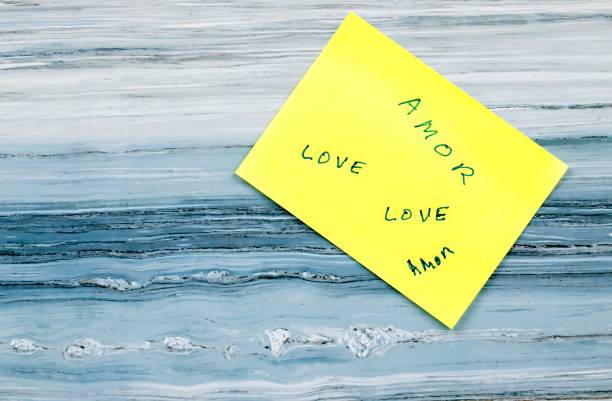 AMOR
LOVE
LOVE
AMOR